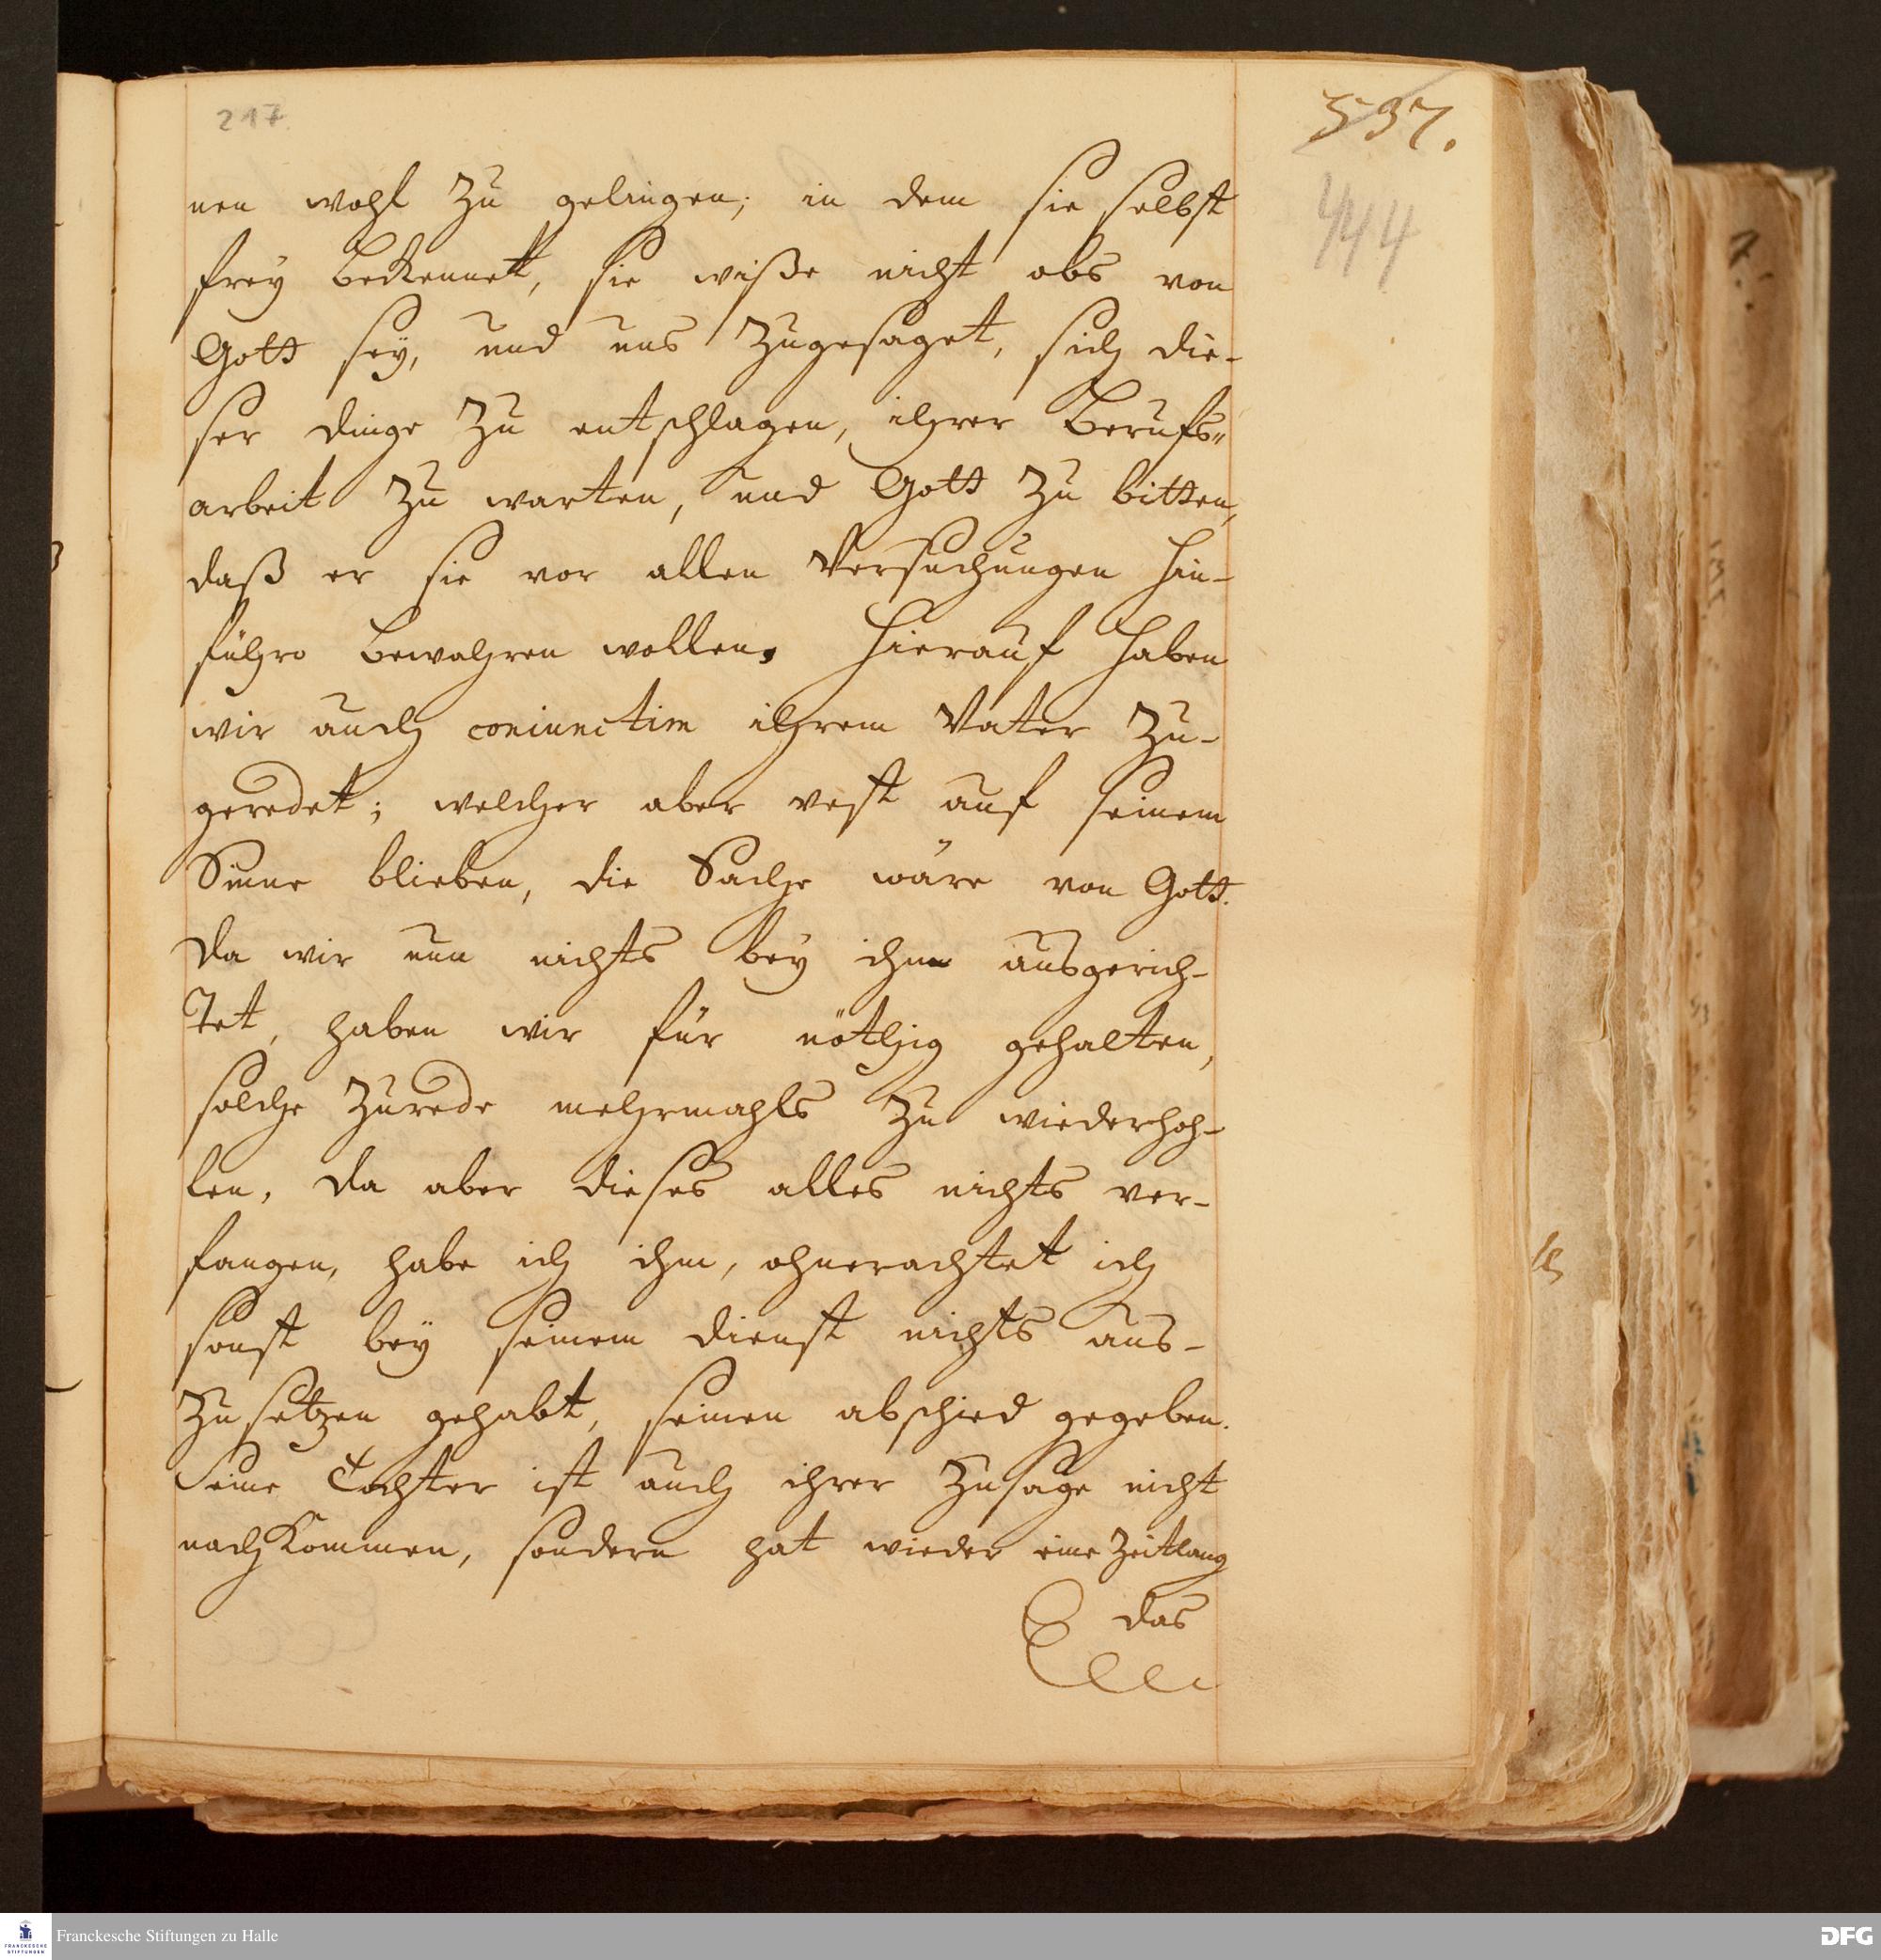 217
537.
444
nen wohl zu gelingen; in dem sie selbst
frey bekennet, sie wiße nicht obs von
Gott seÿ, und uns zugesaget, sich die-
ser dinge zu entschlagen, ihrer Berufs-
arbeit zu warten, und Gott zu bitten,
daß er sie vor allen Versuchungen hin-
führo bewahren wollen. Hierauf haben
wir auch coniunctim ihrem Vater zu-
geredet; welcher aber vest auf seinem
Sinne blieben, die Sache wäre von Gott.
Da wir nun nichts bey ihm ausgerich-
tet, haben wir für nöthig gehalten,
solche Zurede mehrmahls zu wiederhoh-
len, da aber dieses alles nichts ver-
fangen, habe ich ihm, ohnerachtet ich
sonst beÿ seinem dienst nichts aus-
zusetzen gehabt, seinen abschied gegeben.
Seine Tochter ist auch ihrer Zusage nicht
nachkommen, sondern hat wieder eine Zeitlang
das
Franckesche Stiftungen zu Halle
DFG